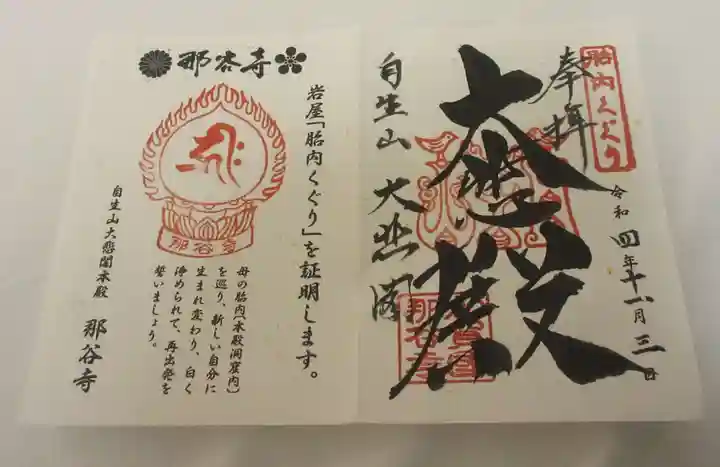 胎内くぐり
奉拝
令和四年十一月三日
大悲殿
自生山 大悲閣
那谷寺
那谷寺
岩屋「胎内くぐり」を証明します。
母の胎内(本殿洞窟内)
を巡り、新しい自分に
生まれ変わり、白く
浄められて、再出発を
誓いましょう。
那谷寺
自生山大悲閣本殿 那谷寺